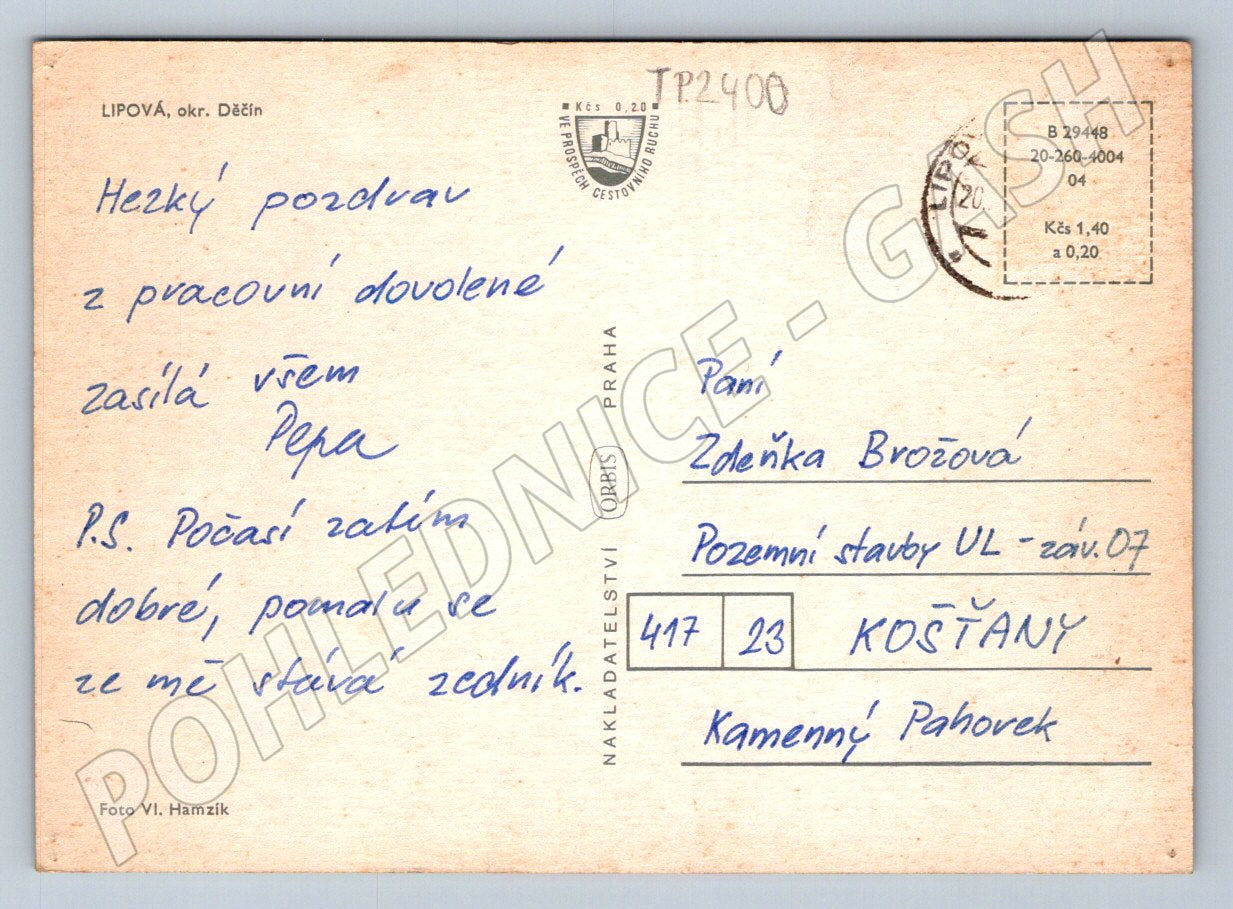 LIPOVÁ, okr. Děčín
TP2400
Kčs 0,20
VE PROSPĚCH CESTOVNÍHO RUCHU
B 29448
20-260-4004
04
Kčs 1,40
a 0,20
LIPOV
20.
Hezký pozdrav
z pracovní dovolené
zasílá všem
Pepa
P.S. Počasí zatím
dobré, pomalu se
ze mě stává zedník.
Foto Vl. Hamzík
NAKLADATELSTVÍ ORBIS PRAHA
Paní
Zdeňka Brožová
Pozemní stavby UL - záv. 07
417 23 KOŠŤANY
Kamenný Pahorek
POHLEDNICE - GASH